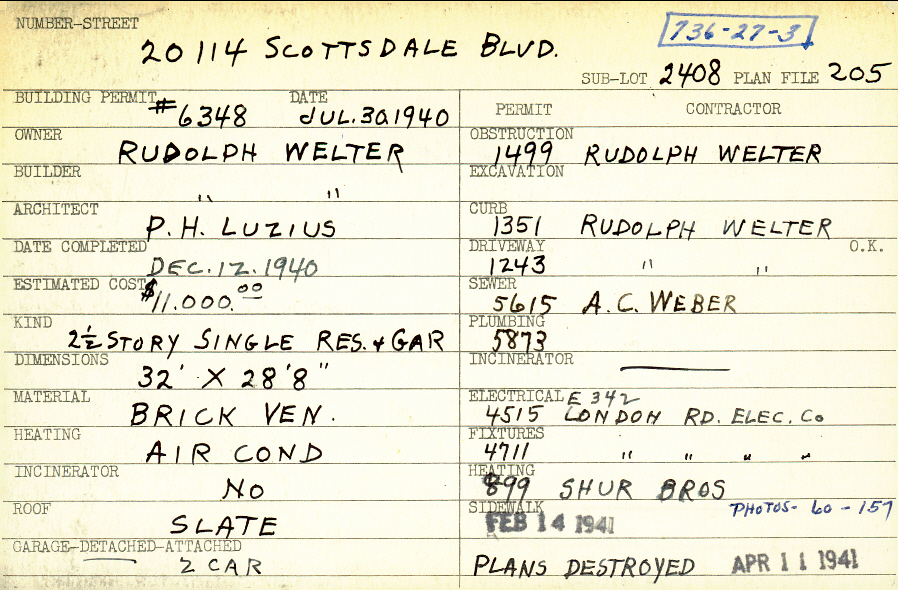 NUMBER-STREET
20114 SCOTTSDALE BLVD.
736-27-3
SUB-LOT 2408 PLAN FILE 205
BUILDING PERMIT #6348 DATE JUL.30.1940
PERMIT CONTRACTOR
OWNER RUDOLPH WELTER
OBSTRUCTION 1499 RUDOLPH WELTER
BUILDER " "
EXCAVATION
ARCHITECT P.H. LUZIUS
CURB 1351 RUDOLPH WELTER
DATE COMPLETED DEC.12.1940
DRIVEWAY 1243 " " O.K.
ESTIMATED COST $11.000.00
SEWER 5615 A.C. WEBER
KIND 2½ STORY SINGLE RES. & GAR
PLUMBING 5873
DIMENSIONS 32' X 28'8"
INCINERATOR ———
MATERIAL BRICK VEN.
ELECTRICAL E 342
4515 LONDON RD. ELEC. Co
HEATING AIR COND
FIXTURES 4711 " " " "
INCINERATOR NO
HEATING 899 SHUR BROS
ROOF SLATE
SIDEWALK FEB 14 1941 PHOTOS - 60 - 157
GARAGE-DETACHED-ATTACHED
2 CAR
PLANS DESTROYED APR 11 1941